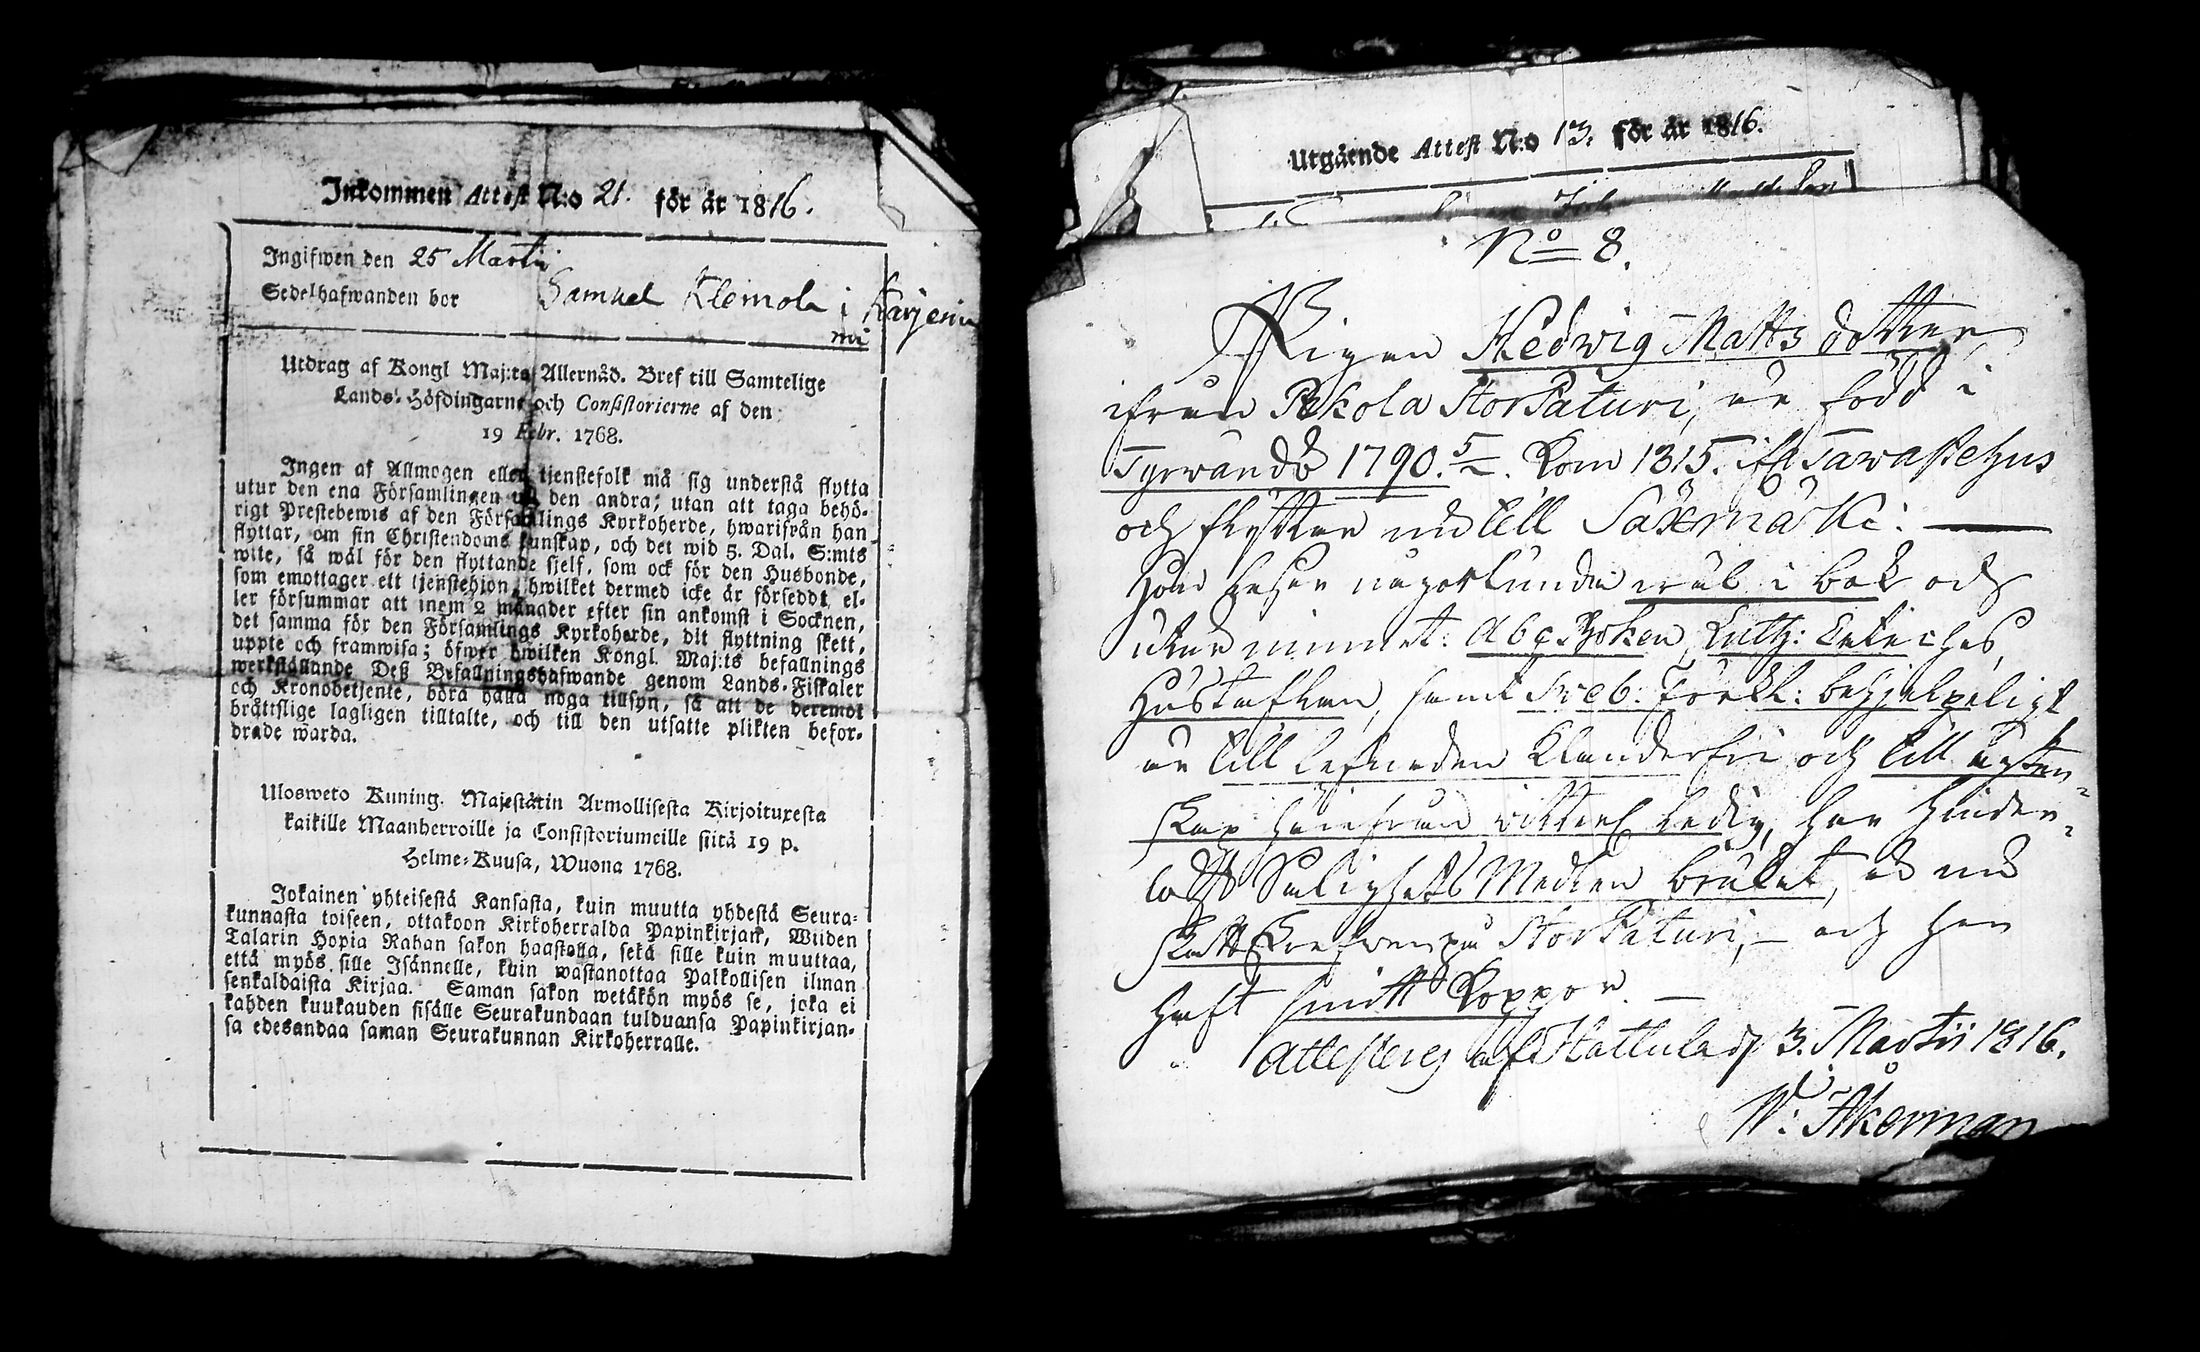 Inkommen Attest N:o 21. för år 1816.
Ingifwen den 25 Martii
Sedelhafwanden bor Samuel Klemola i Karjenie
mi
Utdrag af Kongl Maj:ts Allernåd. Bref till Samtelige
Lands-Höfdingarne och Consistorierne af den
19 Febr. 1768.
Ingen af Allmogen eller tjenstefolk må sig understå flytta
utur den ena Församlingen till den andra; utan att taga behö-
rigt Prestebewis af den Församlings Kyrkoherde, hwarifrån han
flyttar, om sin Christendoms kunskap, och det wid 5. Dal. S:mts
wite, så wäl för den flyttande sjelf, som ock för den Husbonde,
som emottager ett tjenstehjon, hwilket dermed icke är förseddt el-
ler försummar att inom 2 månader efter sin ankomst i Socknen,
det samma för den Församlings Kyrkoherde, dit flyttning skett,
uppte och framwisa; öfwer hwilken Kongl. Maj:ts befallnings
werkställande Deß Befallningshafwande genom Lands-Fiskaler
och Kronobetjente, böra hålla noga tillsyn, så att de deremot
bråttslige lagligen tilltalte, och till den utsatte plikten befor-
drade warda.
Ulosweto Kuning. Majestätin Armollisesta Kirjoituxesta
kaikille Maanherroille ja Consistoriumeille siitä 19 p.
Helme-Kuusa, Wuona 1768.
Jokainen yhteisestä Kansasta, kuin muutta yhdestä Seura-
kunnasta toiseen, ottakoon Kirkoherralda Papinkirjan, Wiiden
Talarin Hopia Rahan sakon haastolla, sekä sille kuin muuttaa,
että myös sille Isännelle, kuin wastanottaa Palkollisen ilman
senkaldaista Kirjaa. Saman sakon wetäkön myös se, joka ei
kahden kuukauden sisälle Seurakundaan tulduansa Papinkirjan-
sa edesandaa saman Seurakunnan Kirkoherralle.
Utgående Attest N:o 13. för år 1816.
No 8.
Pigan Hedwig Matts dotter
ifrån Pekola StorPaturi, är född i
Tyrwändö 1790. 5/ Kom 1815. ifr Tawastehus
och flyttar nu till Säxmäki:
Hon läser någorlunda wäl i bok och
utur minnet: Abc Boken, Luth: Cateches,
Hustaflan, samt Sweb: Förkl: behjelpeligt
är till lefnaden Klanderfri och till ägten-
skap härifrån witterl. ledig, har hinder-
löst Salighets Medlen brukat, är nu
skattskrefwen på StorPaturi, och har
haft smitt Koppor.
Attesterey af Hattula d. 3. Martii 1816.
W: Åkerman